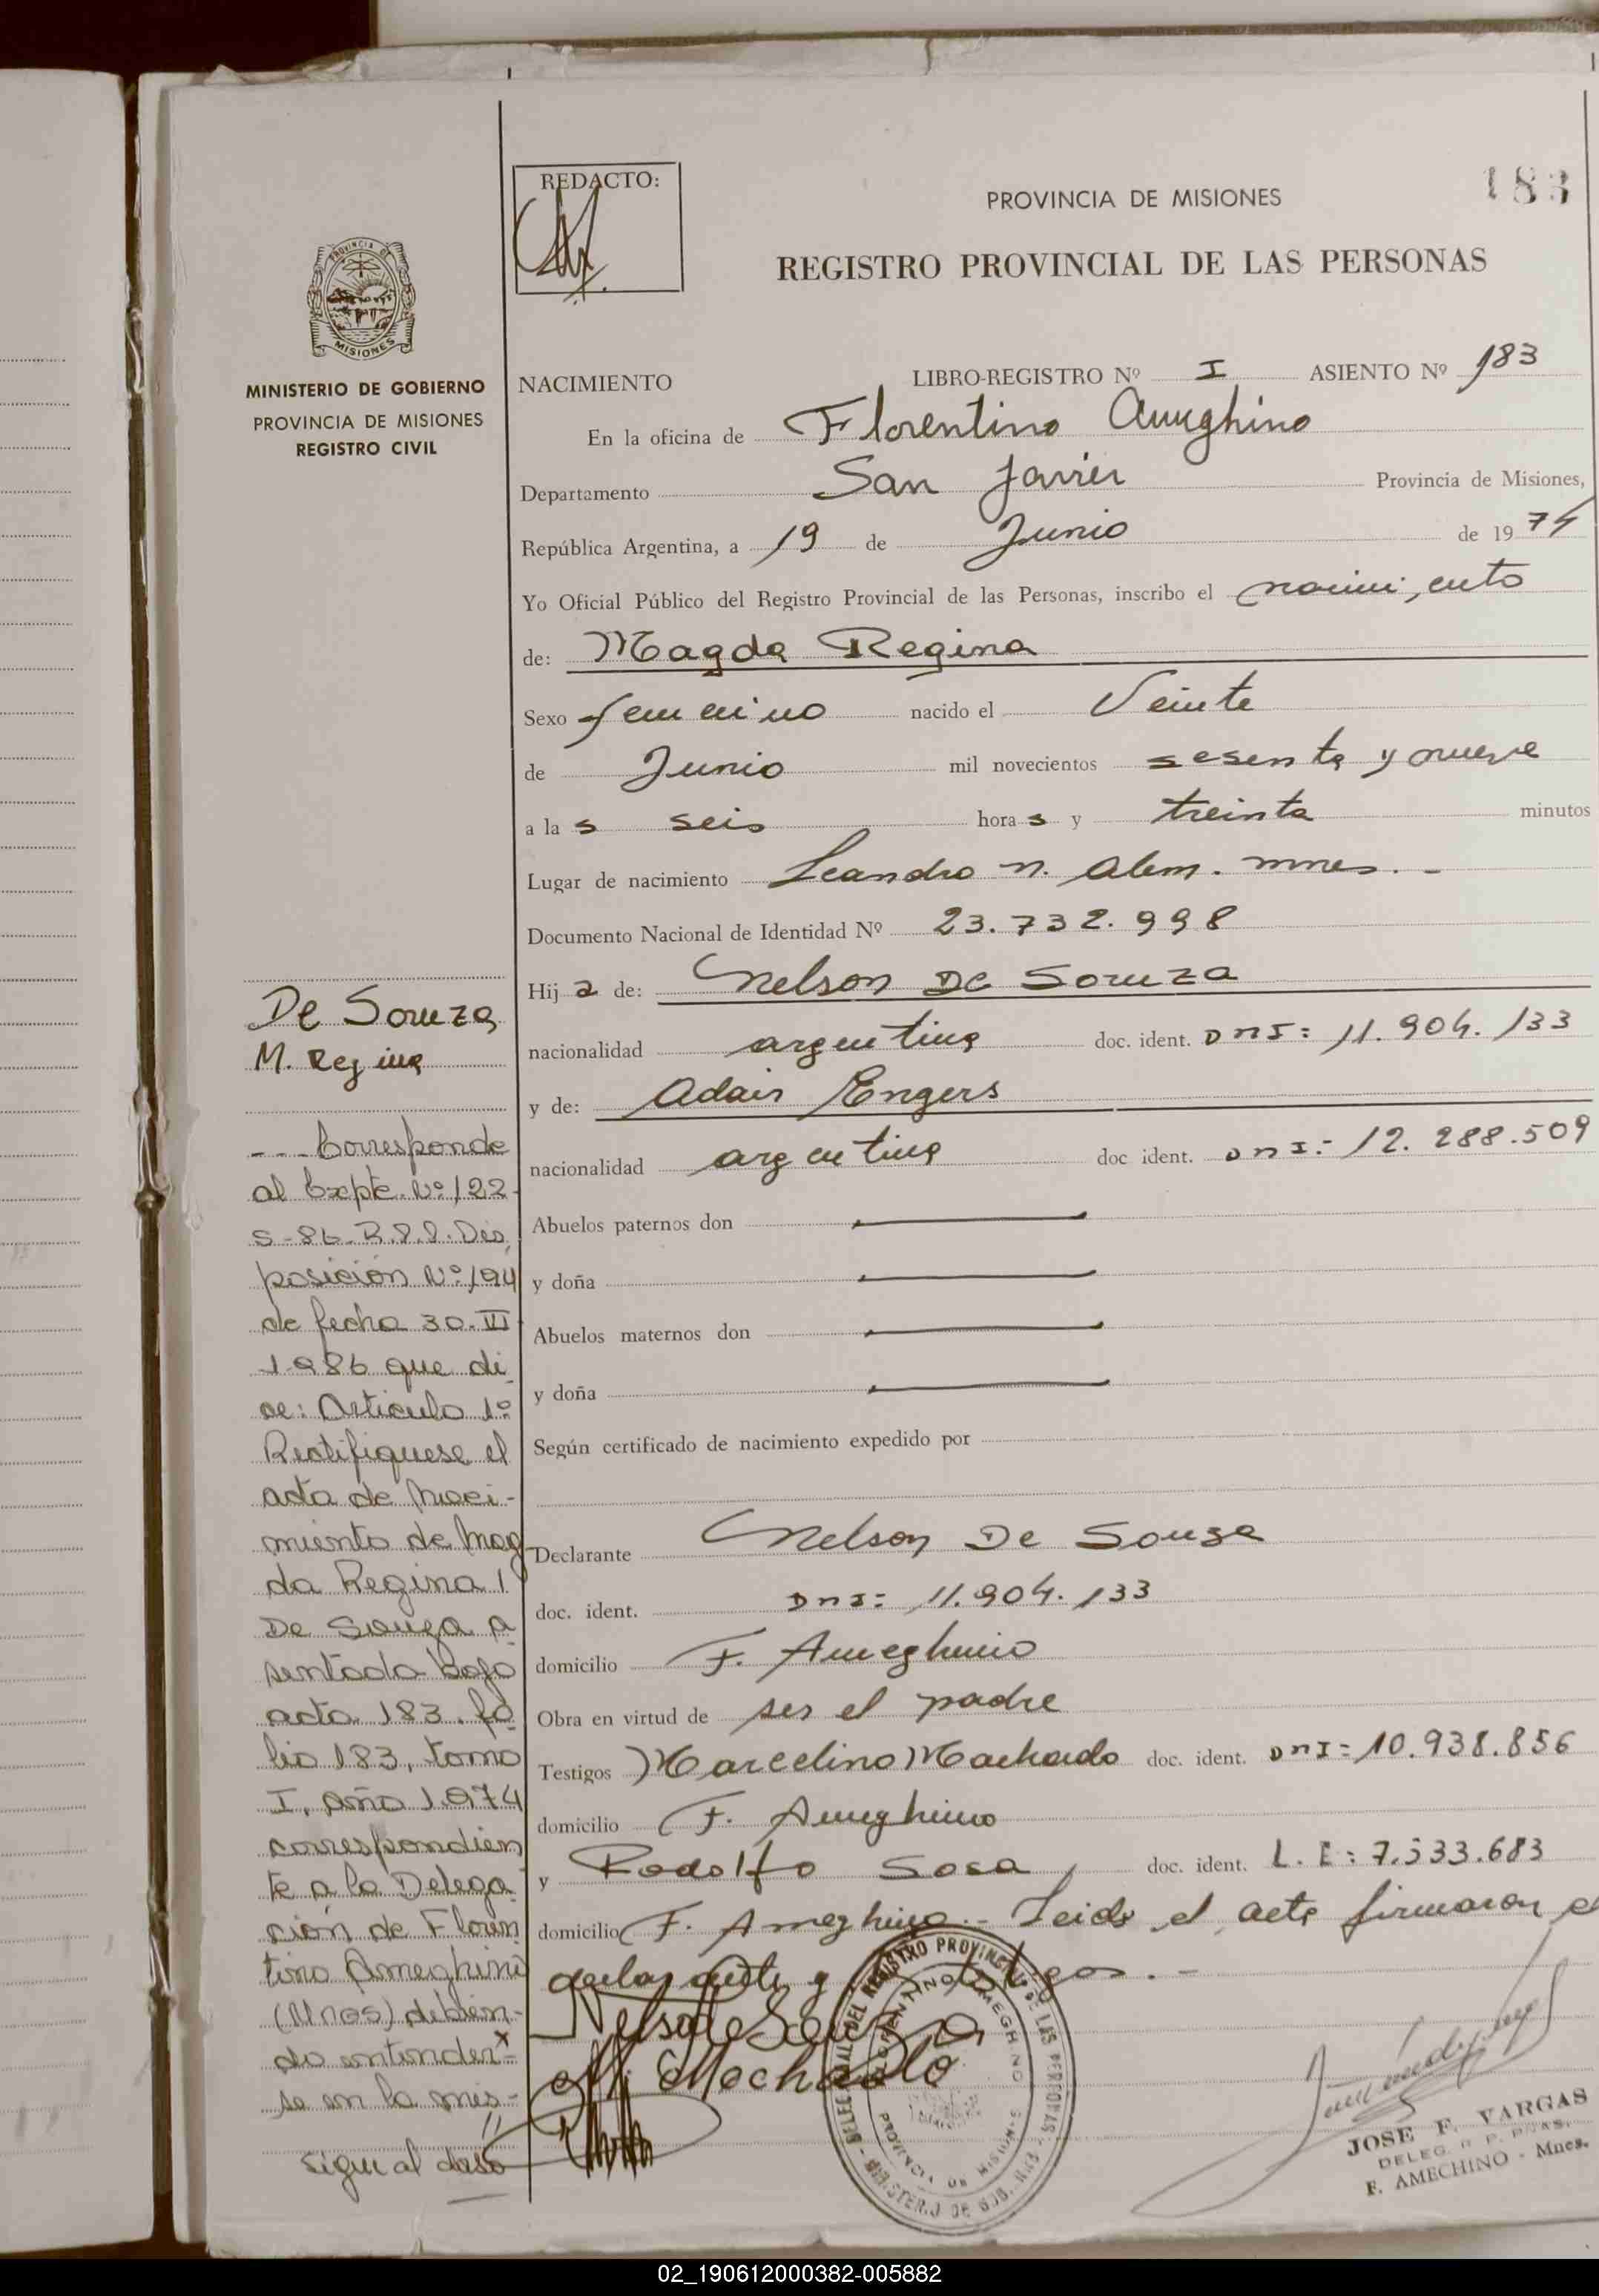 183
REDACTO:
PROVINCIA DE MISIONES
REGISTRO PROVINCIAL DE LAS PERSONAS
PROVINCIA DE
MISIONES
MINISTERIO DE GOBIERNO
PROVINCIA DE MISIONES
REGISTRO CIVIL
NACIMIENTO LIBRO-REGISTRO Nº I ASIENTO Nº 183
En la oficina de Florentino Ameghino
Departamento San Javier Provincia de Misiones,
República Argentina, a 19 de Junio de 1974
Yo Oficial Público del Registro Provincial de las Personas, inscribo el nacimiento
de: Magda Regina
Sexo femenino nacido el Veinte
de Junio mil novecientos sesenta y nueve
a las seis horas y treinta minutos
Lugar de nacimiento Leandro n. Alem. mnes. -
Documento Nacional de Identidad Nº 23.732.998
Hija de: Nelson De Souza
nacionalidad argentina doc. ident. DnI: 11.904.133
y de: Adair Engers
nacionalidad argentina doc ident. DnI: 12.288.509
Abuelos paternos don
y doña
Abuelos maternos don
y doña
Según certificado de nacimiento expedido por
Declarante Nelson De Souza
doc. ident. DnI: 11.904.133
domicilio F. Ameghino
Obra en virtud de ser el padre
Testigos Marcelino Machado doc. ident. DnI: 10.938.856
domicilio F. Ameghino
y Rodolfo Sosa, doc. ident. L.E: 7.533.683
domicilio F. Ameghino.- Leida el acta firmaron el
declarante y testigos. -
Nelson De Souza
M. Machado
De Souza
M. Regina
---Corresponde
al Expte. Nº 122
S-86-R.P.P. Dis
posición Nº 194
de fecha 30. VI
1986 que di
ce: Articulo 1º
Rectifiquese el
acta de naci-
miento de Mag
da Regina
De Souza a
sentada bajo
acta 183. fo
lio 183, tomo
I, año 1974
correspondien
te a la Delega
ción de Floren
tino Ameghino
(Mnes) debien-
do entender-
se en la mis-
sigue al dorso
DELEG REGISTRO PROVINCIAL DE LAS PERSONAS
FLORENTINO AMEGHINO
PROVINCIA DE MISIONES
JOSE F. VARGAS
DELEG. R. P. P/RAS.
F. AMECHINO - Mnes.
02_190612000382-005882